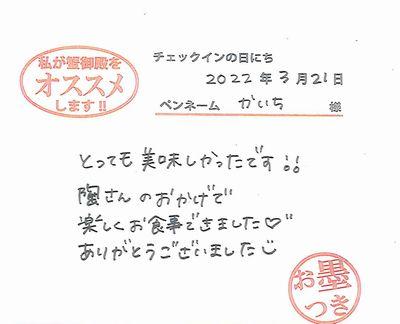 私が蟹御殿を
オススメ
します!!
チェックインの日にち
2022年3月21日
ペンネーム かいち 様
とっても美味しかったです!!
陶さんのおかげで
楽しくお食事できました♡
ありがとうございました
お墨
つき